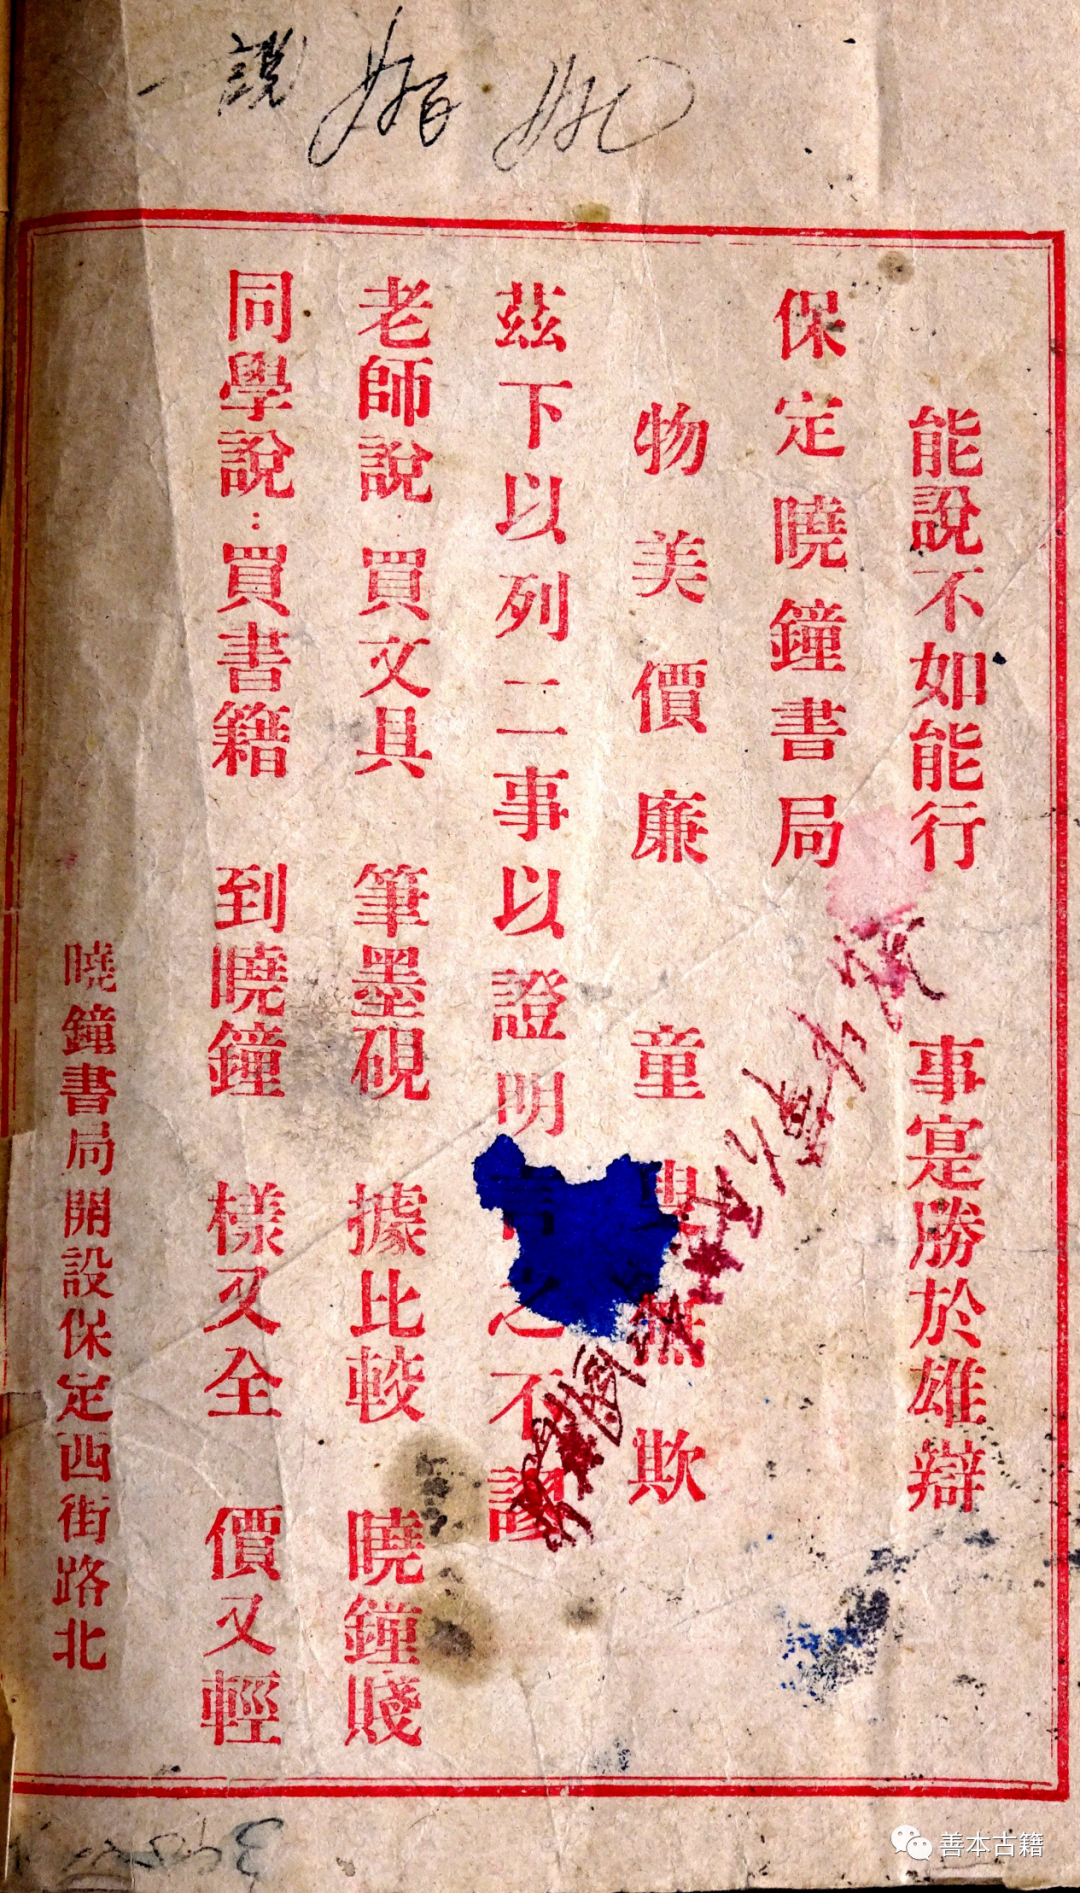 說
能說不如能行 事寔勝於雄辯
保定曉鐘書局
物美價廉 童叟無欺
茲下以列二事以證明言之不謬
老師說：買文具 筆墨硯 據比較 曉鐘賤
同學說：買書籍 到曉鐘 樣又全 價又輕
曉鐘書局開設保定西街路北
善本古籍